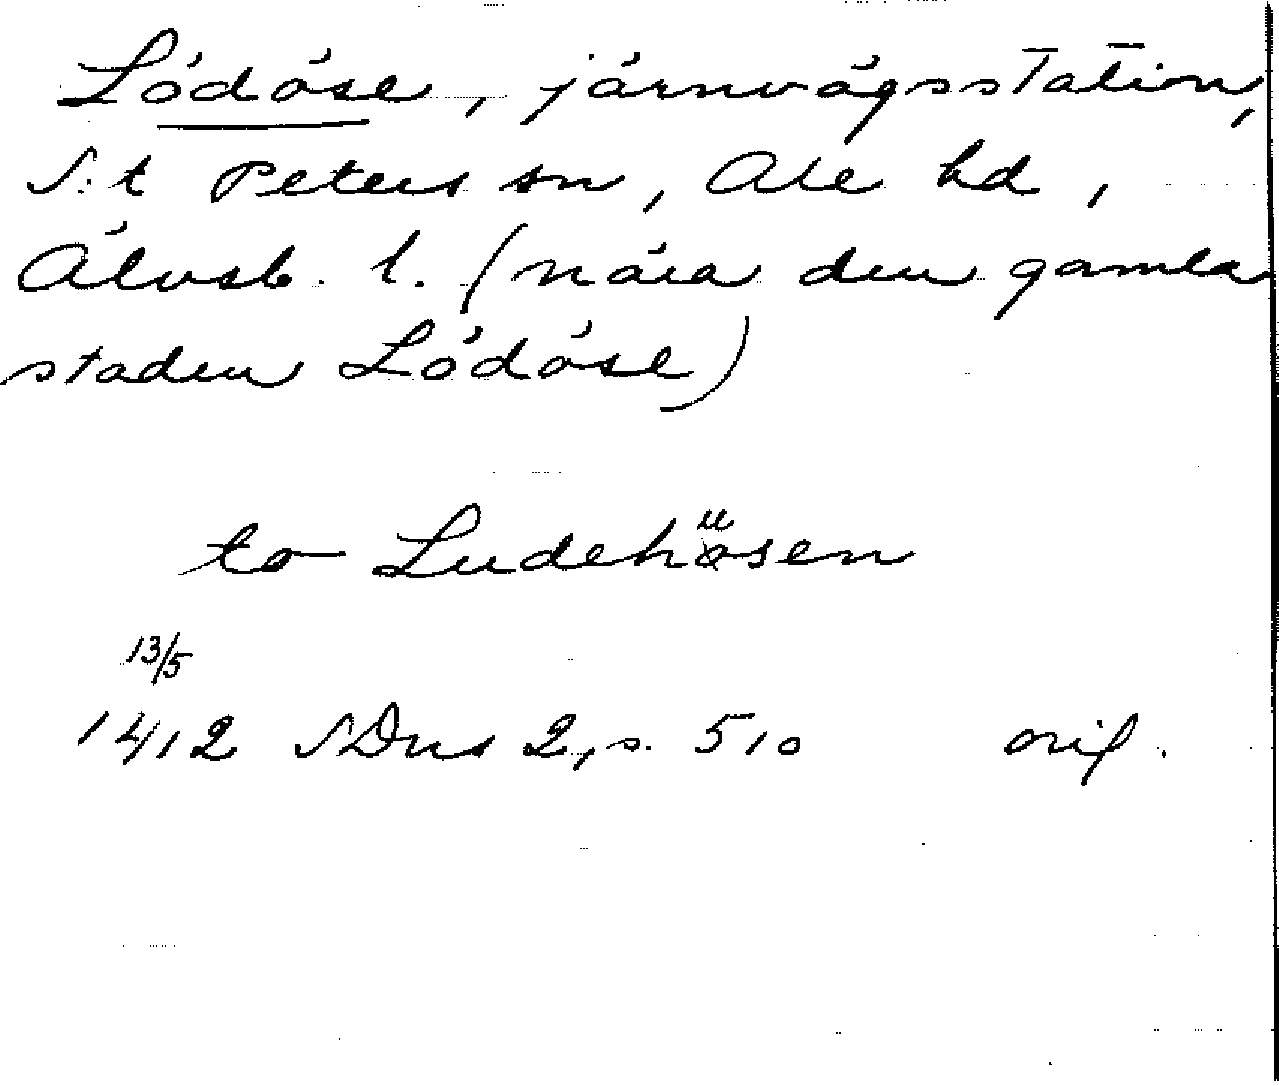 Lödöse, järnvägsstation,
S:t Peters sn, Ale hd,
Älvsb. l. (nära den gamla
staden Lödöse)
to Ludehüsen
13/5
1412 SDns 2, s. 510 orig.